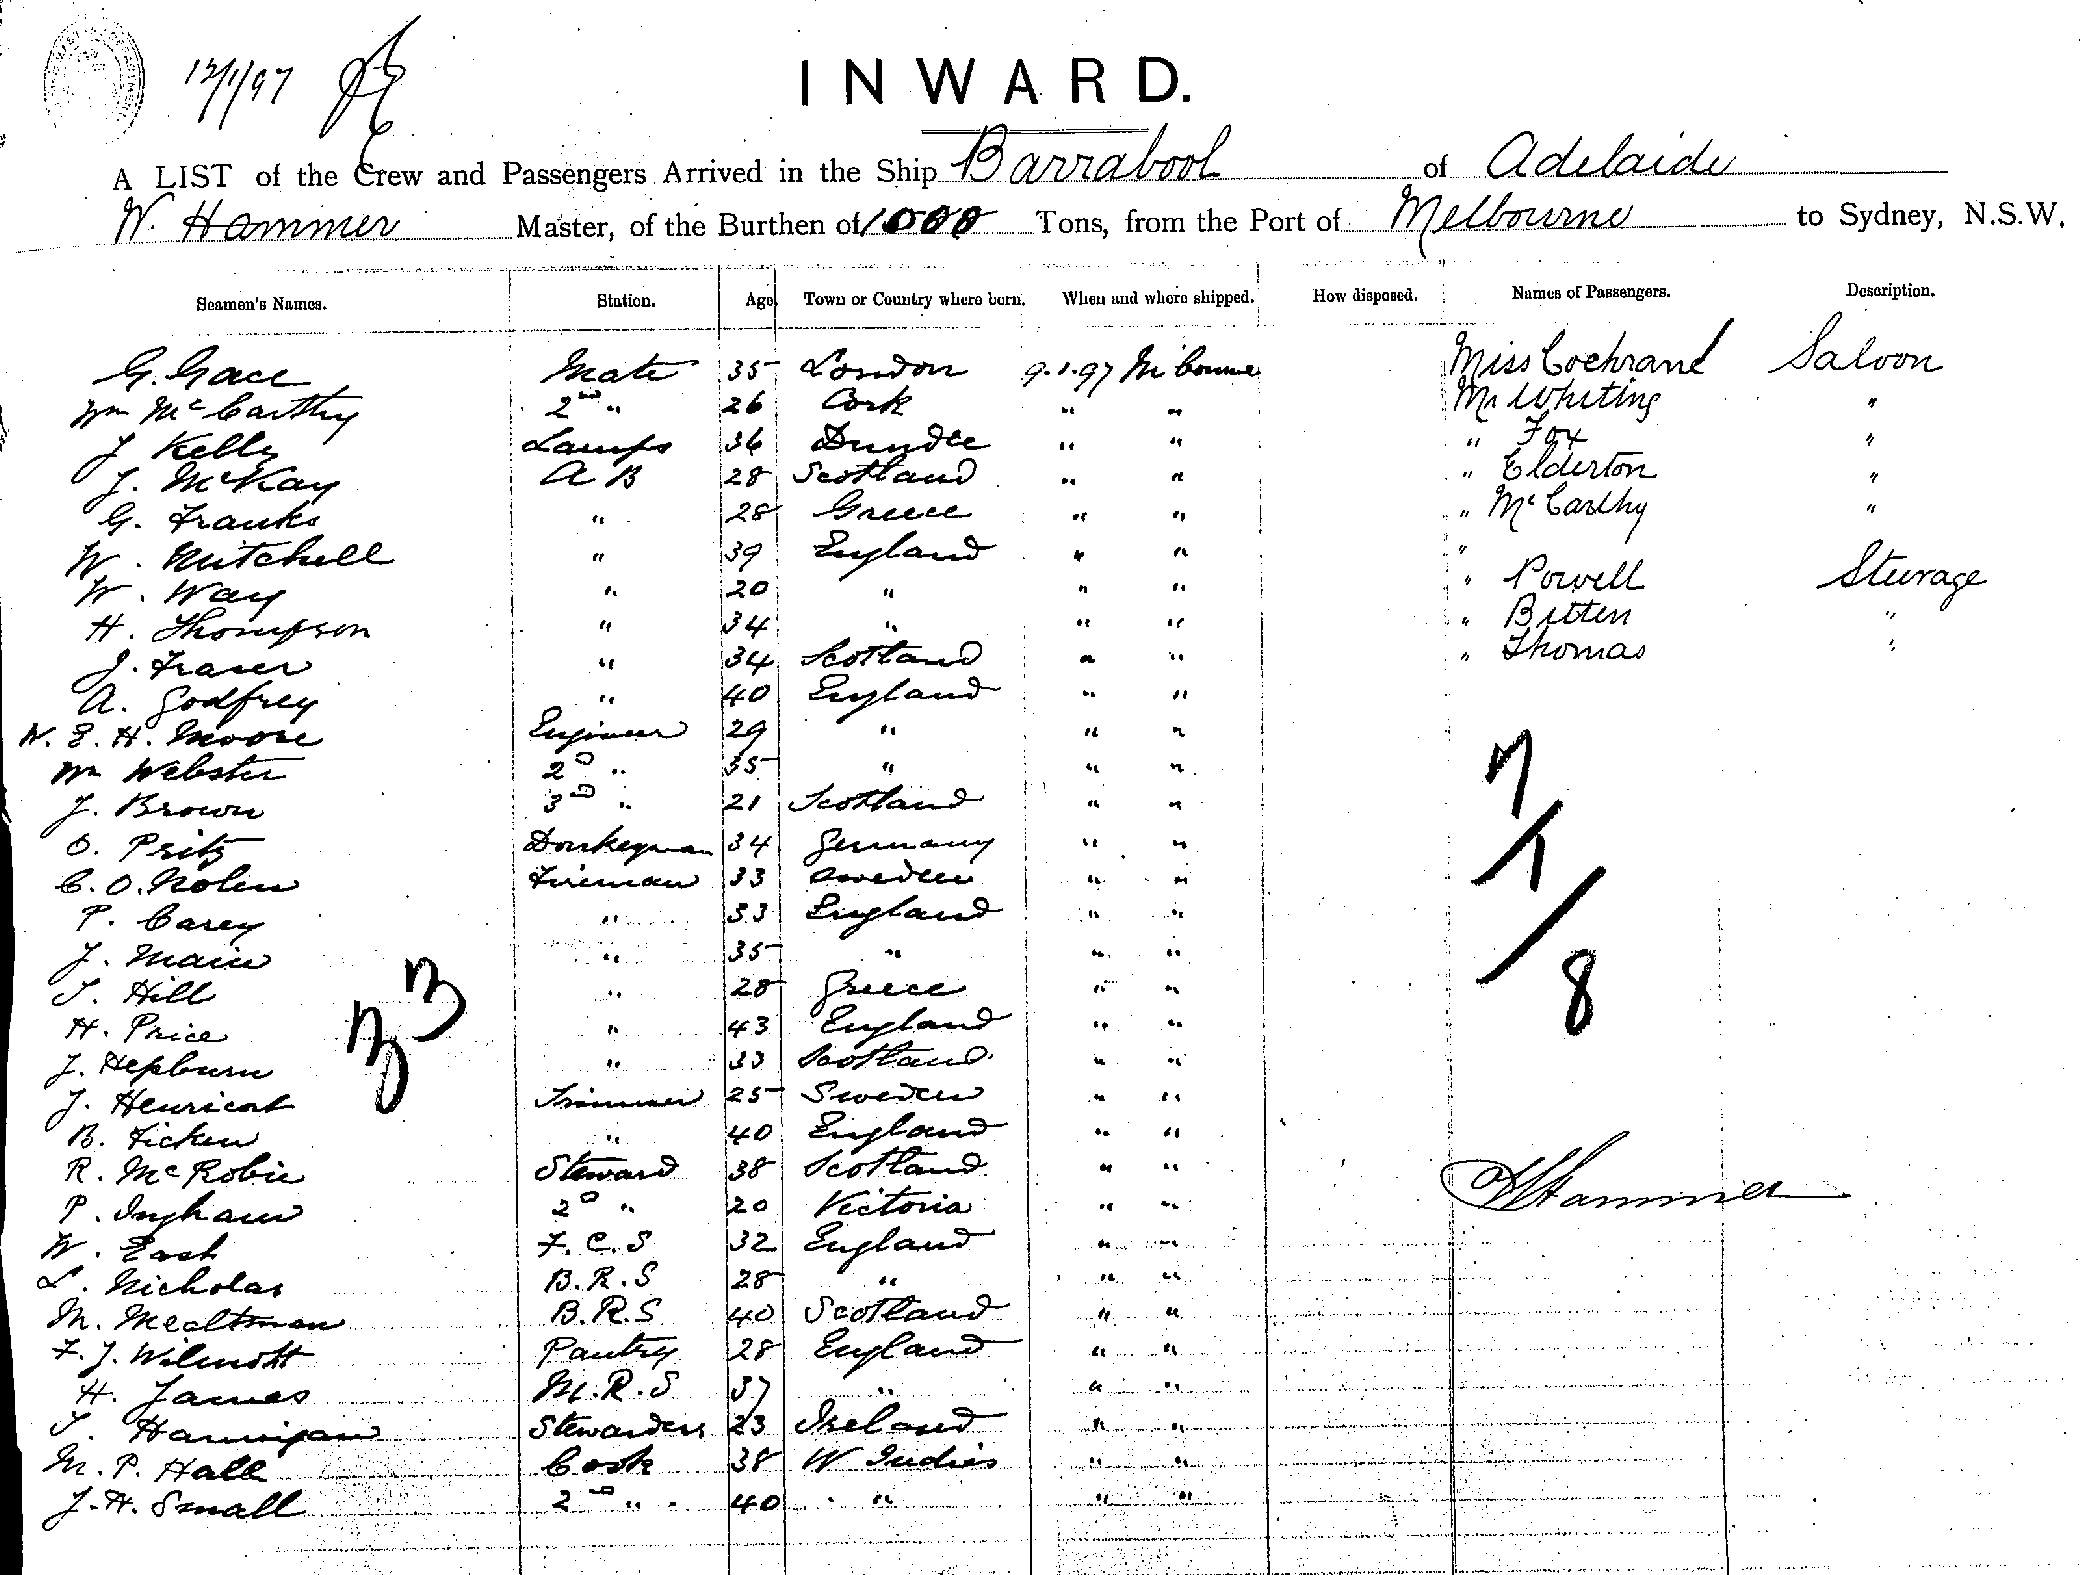 12/1/97
INWARD.
A LIST of the Crew and Passengers Arrived in the Ship Barrabool of Adelaide
W. Hammer Master, of the Burthen of 1000 Tons, from the Port of Melbourne to Sydney, N.S.W.
Seamen's Names. Station. Age Town or Country where born. When and where shipped. How disposed. Names of Passengers. Description.
G. Grace Mate 35 London 9.1.97 Miss Cochrane Saloon
Wm McCarthy 2nd " 26 Cork " " Mr Whiting "
J Kelly Lamps 36 Dundee " " " Fox "
J. McKay A B 28 Scotland " " " Elderton "
G. Franks " 28 Greece " " " McCarthy "
W. Mitchell " 39 England " " "
W. Way " 20 " " " " Powell Steerage
H. Thompson " 34 " " " " Bitten "
J. Fraser " 34 Scotland " " " Thomas "
A. Godfrey " 40 England " "
W. E. H. Moore Engineer 29 " " "
Wm Webster 2D " 35 " " "
J. Brown 3D " 21 Scotland " "
O. Pritz Donkeyman 34 Germany " "
C. O. Nolen Fireman 33 Sweden " "
P. Carey " 33 England " "
J. Main " 35 " " "
J. Hill " 28 Greece " "
H. Price " 43 England " "
J. Hepburn " 33 Scotland " "
J. Trimmer 25 Sweden " "
B. Ficken " 40 England " "
R. McRobie Steward 38 Scotland " "
P. Ingham 2D " 20 Victoria " "
W. East F. C. S 32 England " "
L. Nicholas B. R. S 28 " " "
M. B. R. S 40 Scotland " "
F. J. Wilmott Pantry 28 England " "
H. James M. R. S 37 " " "
J. Hannigan Stewardess 23 Ireland " "
M. P. Hall Cook 38 W Indies " "
J. H. Small 2nd " 40 " " "
8
W Hammer